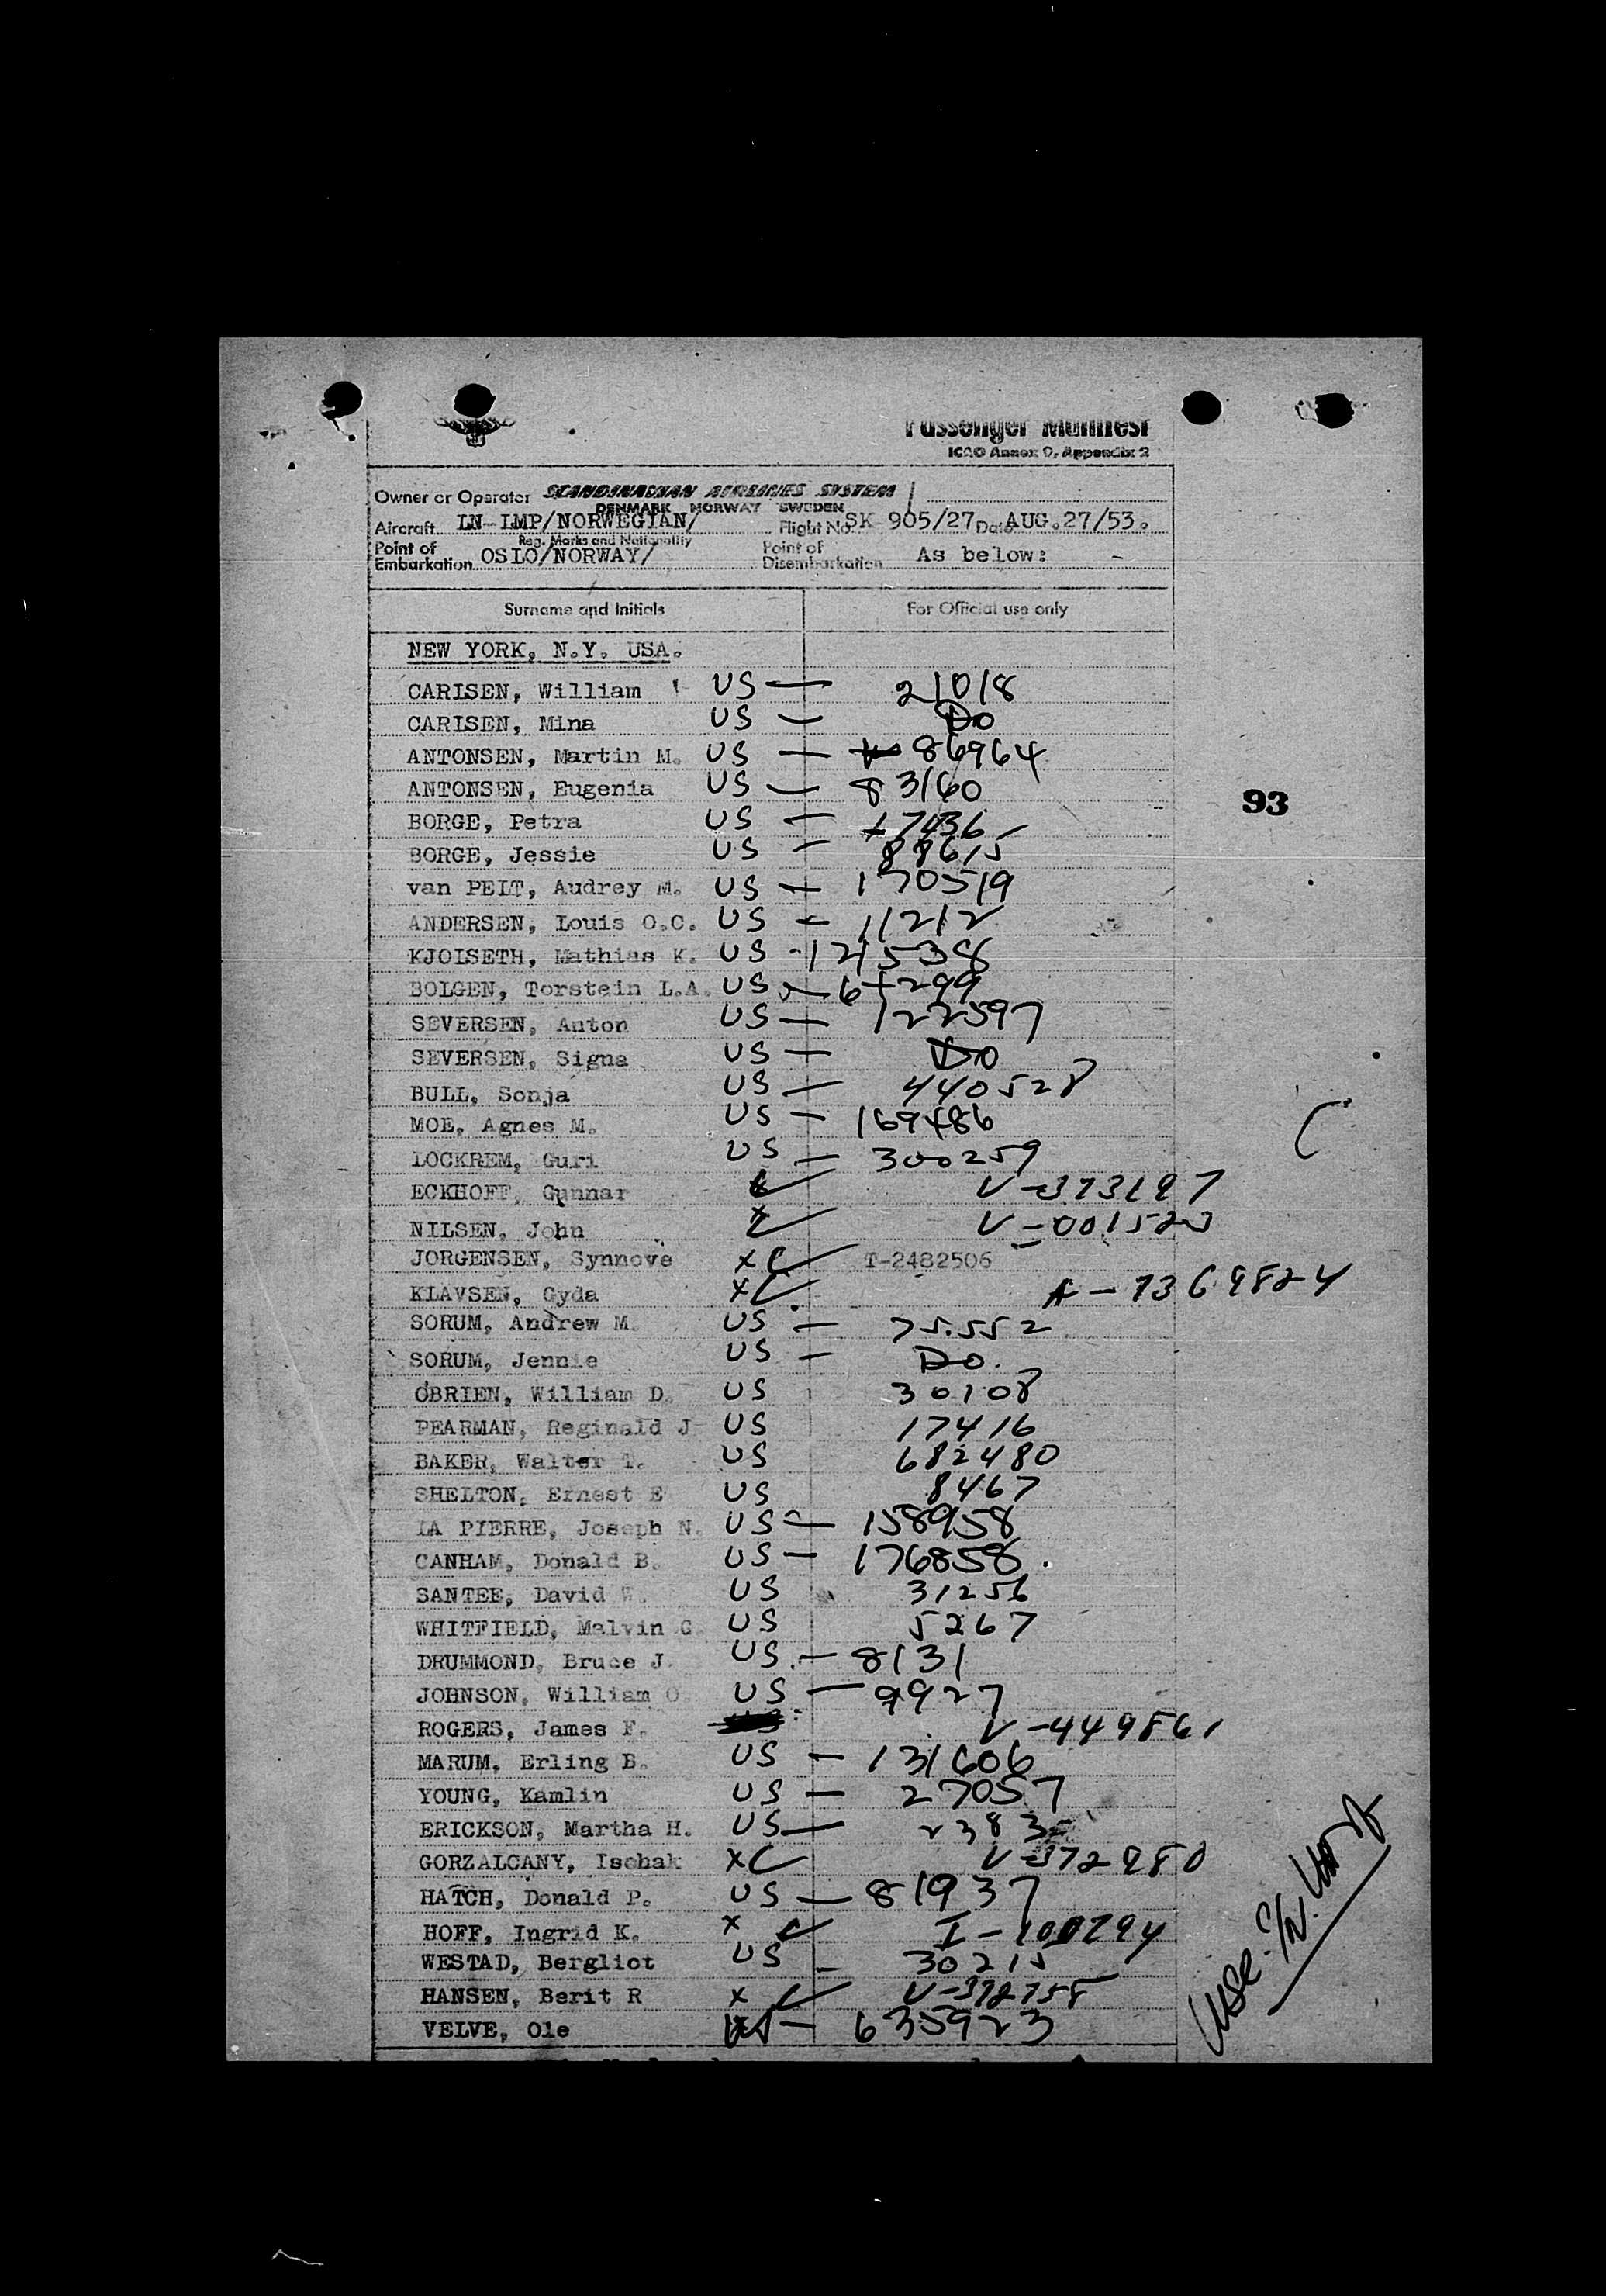 Passenger Manifest
ICAO Annex 9, Appendix 2
Owner or Operator SCANDINAVIAN AIRLINES SYSTEM
DENMARK NORWAY SWEDEN
Aircraft LN-LMP/NORWEGIAN/ Flight No. SK 905/27 Date AUG.27/53.
Reg. Marks and Nationality
Point of Embarkation OSLO/NORWAY/ Point of Disembarkation As below: -
Surname and Initials For Official use only
NEW YORK, N.Y. USA.
CARLSEN, William US — 21018
CARLSEN, Mina US — Do
ANTONSEN, Martin M. US — 86964
ANTONSEN, Eugenia US — 83160
93
BORGE, Petra US — 17436
BORGE, Jessie US — 88615
van PELT, Audrey M. US — 170519
ANDERSEN, Louis O.C. US — 11212
KJOLSETH, Mathias K. US - 1215398
BOLGEN, Torstein L.A. US —
SEVERSEN, Anton US — 122597
SEVERSEN, Signa US — Do
BULL, Sonja US — 440528
MOE, Agnes M. US — 169486
LOCKREM, Guri US — 300259
ECKHOFF, Gunnar V-373197
NILSEN, John V-001523
JORGENSEN, Synnove XC T-2482506
KLAVSEN, Gyda XC A-7369824
SORUM, Andrew M. US — 75552
SORUM, Jennie US — Do.
OBRIEN, William D. US 30108
PEARMAN, Reginald J US 17416
BAKER, Walter T. US 682480
SHELTON, Ernest E US 8467
LA PIERRE, Joseph N. US — 158958
CANHAM, Donald B. US — 176858.
SANTEE, David W. US 31256
WHITFIELD, Malvin G. US 5267
DRUMMOND, Bruce J. US — 8131
JOHNSON, William O. US — 9927
ROGERS, James F. V-449861
MARUM, Erling B. US — 131606
YOUNG, Kamlin US — 27057
ERICKSON, Martha H. US — 2383
GORZALCANY, Ischak XC V-372980
HATCH, Donald P. US — 81937
HOFF, Ingrid K. X C I-100794
WESTAD, Bergliot US — 30215
HANSEN, Berit R X C V-372758
VELVE, Ole US — 635923